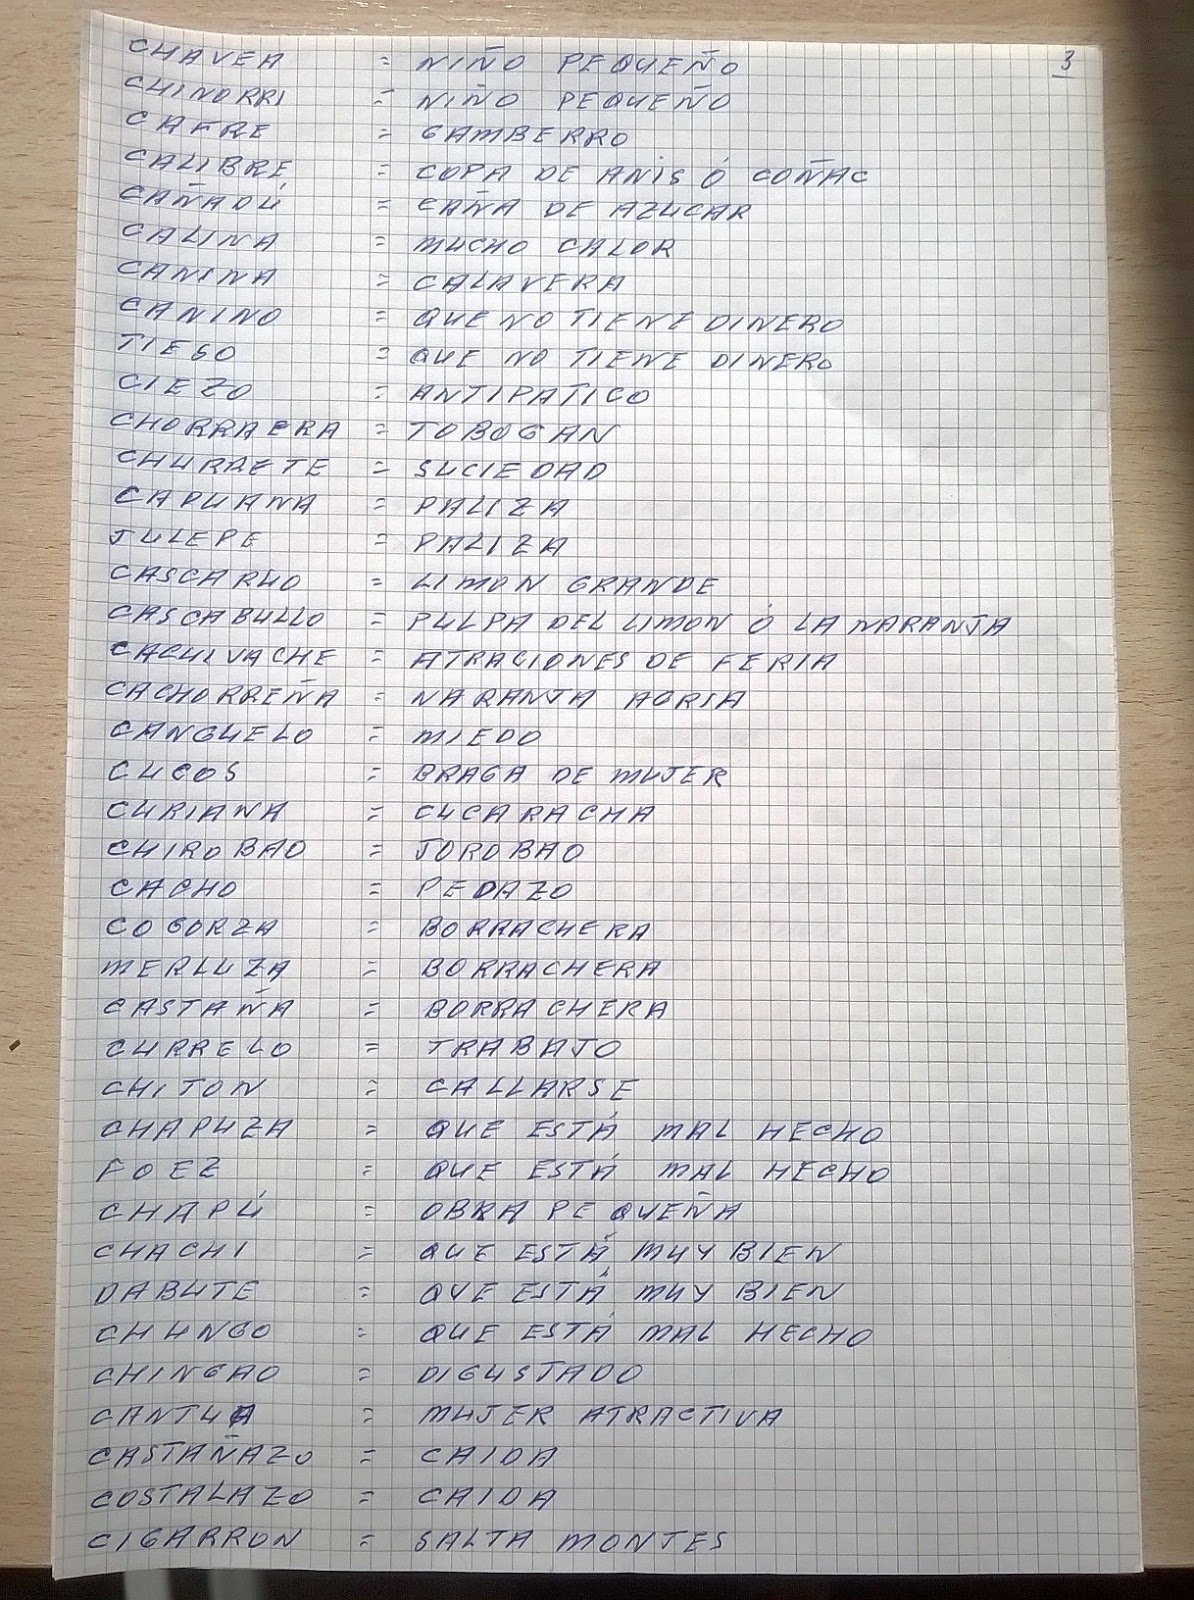 3
CHAVEA = NIÑO PEQUEÑO
CHINORRI = NIÑO PEQUEÑO
CAFRE = GAMBERRO
CALIBRE = COPA DE ANIS Ó COÑAC
CAÑADÚ = CAÑA DE AZUCAR
CALINA = MUCHO CALOR
CANINA = CALAVERA
CANINO = QUE NO TIENE DINERO
TIESO = QUE NO TIENE DINERO
CIEZO = ANTIPATICO
CHORRAERA = TOBOGAN
CHURRETE = SUCIEDAD
CAPUANA = PALIZA
JULEPE = PALIZA
CASCARUO = LIMON GRANDE
CASCABULLO = PULPA DEL LIMON Ó LA NARANJA
CACHIVACHE = ATRACIONES DE FERIA
CACHORREÑA = NARANJA AGRIA
CANGUELO = MIEDO
CUCOS = BRAGA DE MUJER
CURIANA = CUCARACHA
CHIROBAO = JOROBAO
CACHO = PEDAZO
COGORZA = BORRACHERA
MERLUZA = BORRACHERA
CASTAÑA = BORRACHERA
CURRELO = TRABAJO
CHITON = CALLARSE
CHAPUZA = QUE ESTÁ MAL HECHO
FOEZ = QUE ESTÁ MAL HECHO
CHAPÚ = OBRA PEQUEÑA
CHACHI = QUE ESTÁ MUY BIEN
DABUTE = QUE ESTÁ MUY BIEN
CHUNGO = QUE ESTÁ MAL HECHO
CHINGAO = DIGUSTADO
CANTUA = MUJER ATRACTIVA
CASTAÑAZO = CAIDA
COSTALAZO = CAIDA
CIGARRON = SALTA MONTES